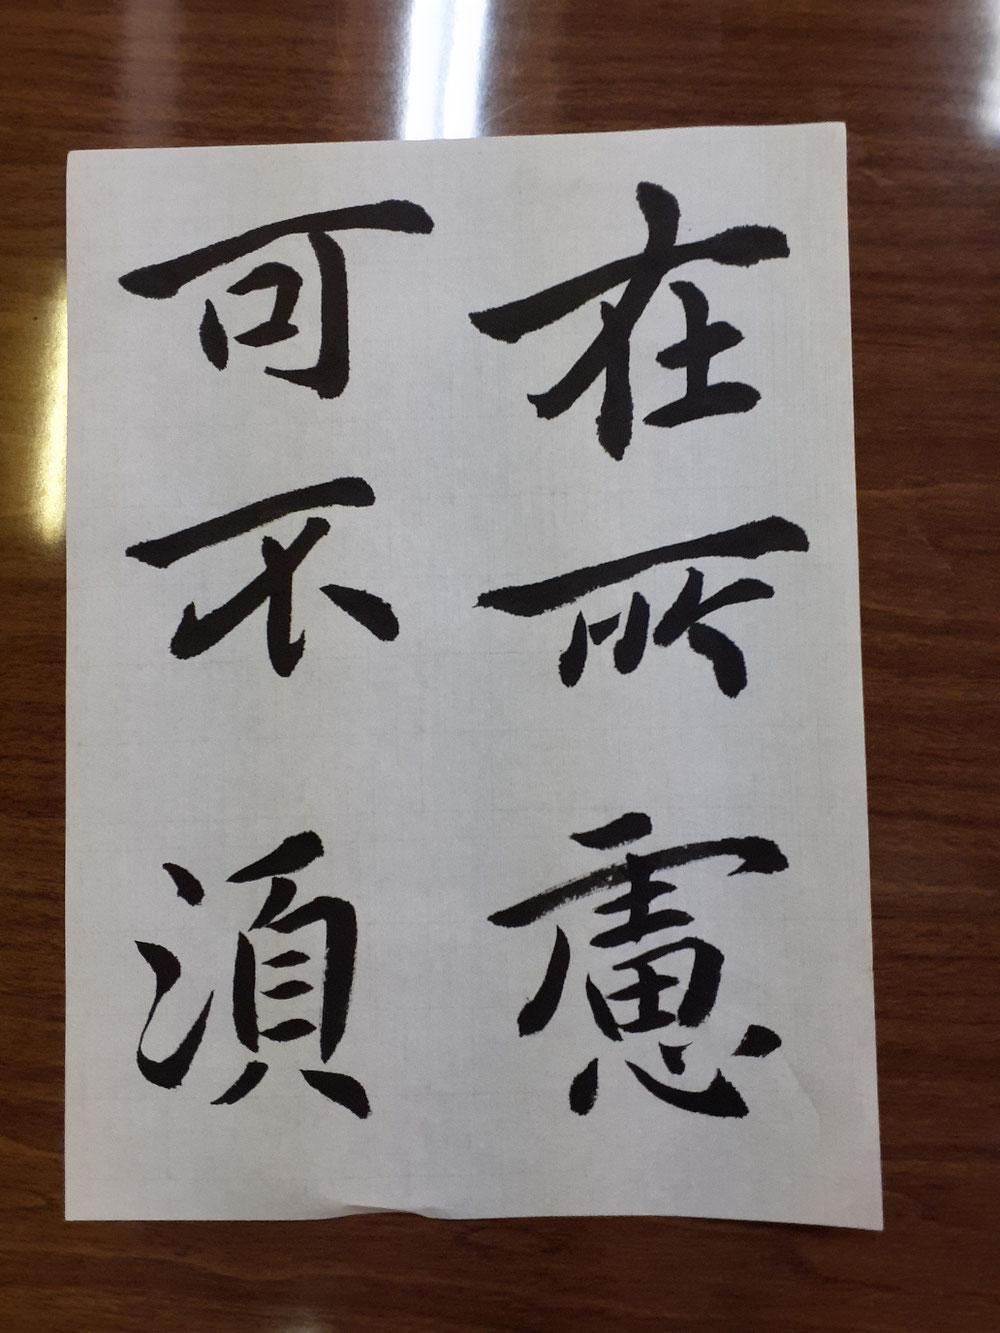 在所慮
可不須